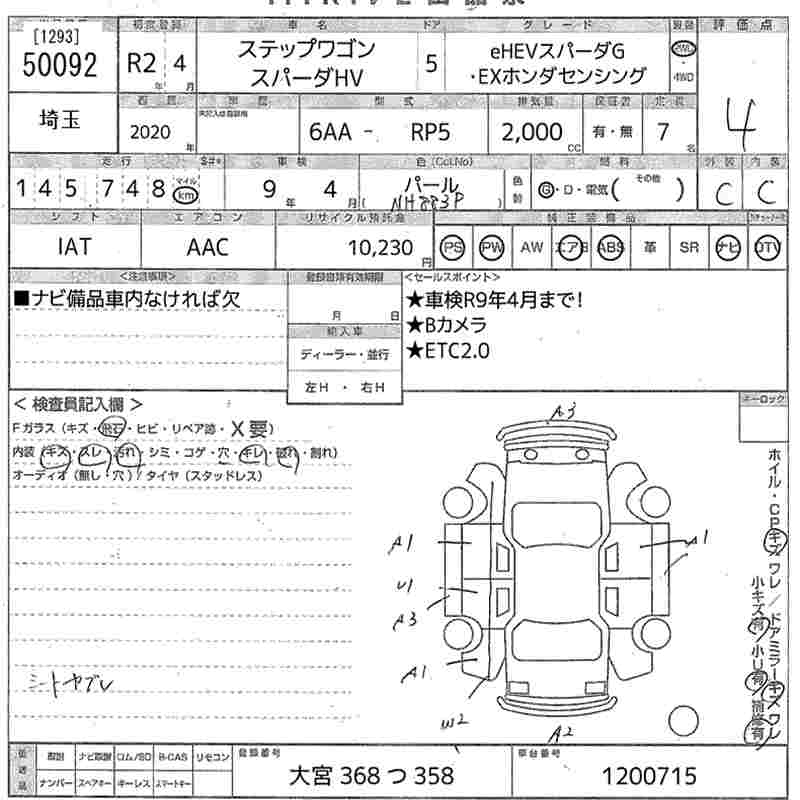 [1293]
50092
初度登録
R2 4
年 月
車名
ステップワゴン
スパーダHV
ドア
5
グレード
eHEVスパーダG
・EXホンダセンシング
2WD
・
4WD
評価点
4
埼玉
2020
年
型式
6AA - RP5
排気量
2,000
CC
有・無
定員
7
名
走行
145 748
マイル
km
車検
9年 4月
色(Col.No)
パール
( NH883P )
色替
燃料
G・D・電気( その他 )
外装
C
内装
C
シフト
IAT
エアコン
AAC
リサイクル預託金
10,230
円
純正装備品
PS PW AW エアB ABS 革 SR ナビ DTV
<注意事項>
■ナビ備品車内なければ欠
登録書類有効期限
月 日
輸入車
ディーラー・並行
左H ・ 右H
<セールスポイント>
★車検R9年4月まで!
★Bカメラ
★ETC2.0
< 検査員記入欄 >
Fガラス(キズ・飛石・ヒビ・リペア跡・X要)
内装(キズ・スレ・汚れ・シミ・コゲ・穴・キレ・破れ・割れ)
オーディオ(無し・穴)/タイヤ(スタッドレス)
シートヤブレ
キーロック
A3
A1
A1
U1
A3
A1
W2
A2
ホイル・CPキズ ワレ/ドアミラーキズ ワレ
小キズ有 小U有 補修有
ナビ取説 ロム/SD B-CAS リモコン
ナンバー スペアキー キーレス スマートキー
登録番号
大宮 368 つ 358
車台番号
1200715